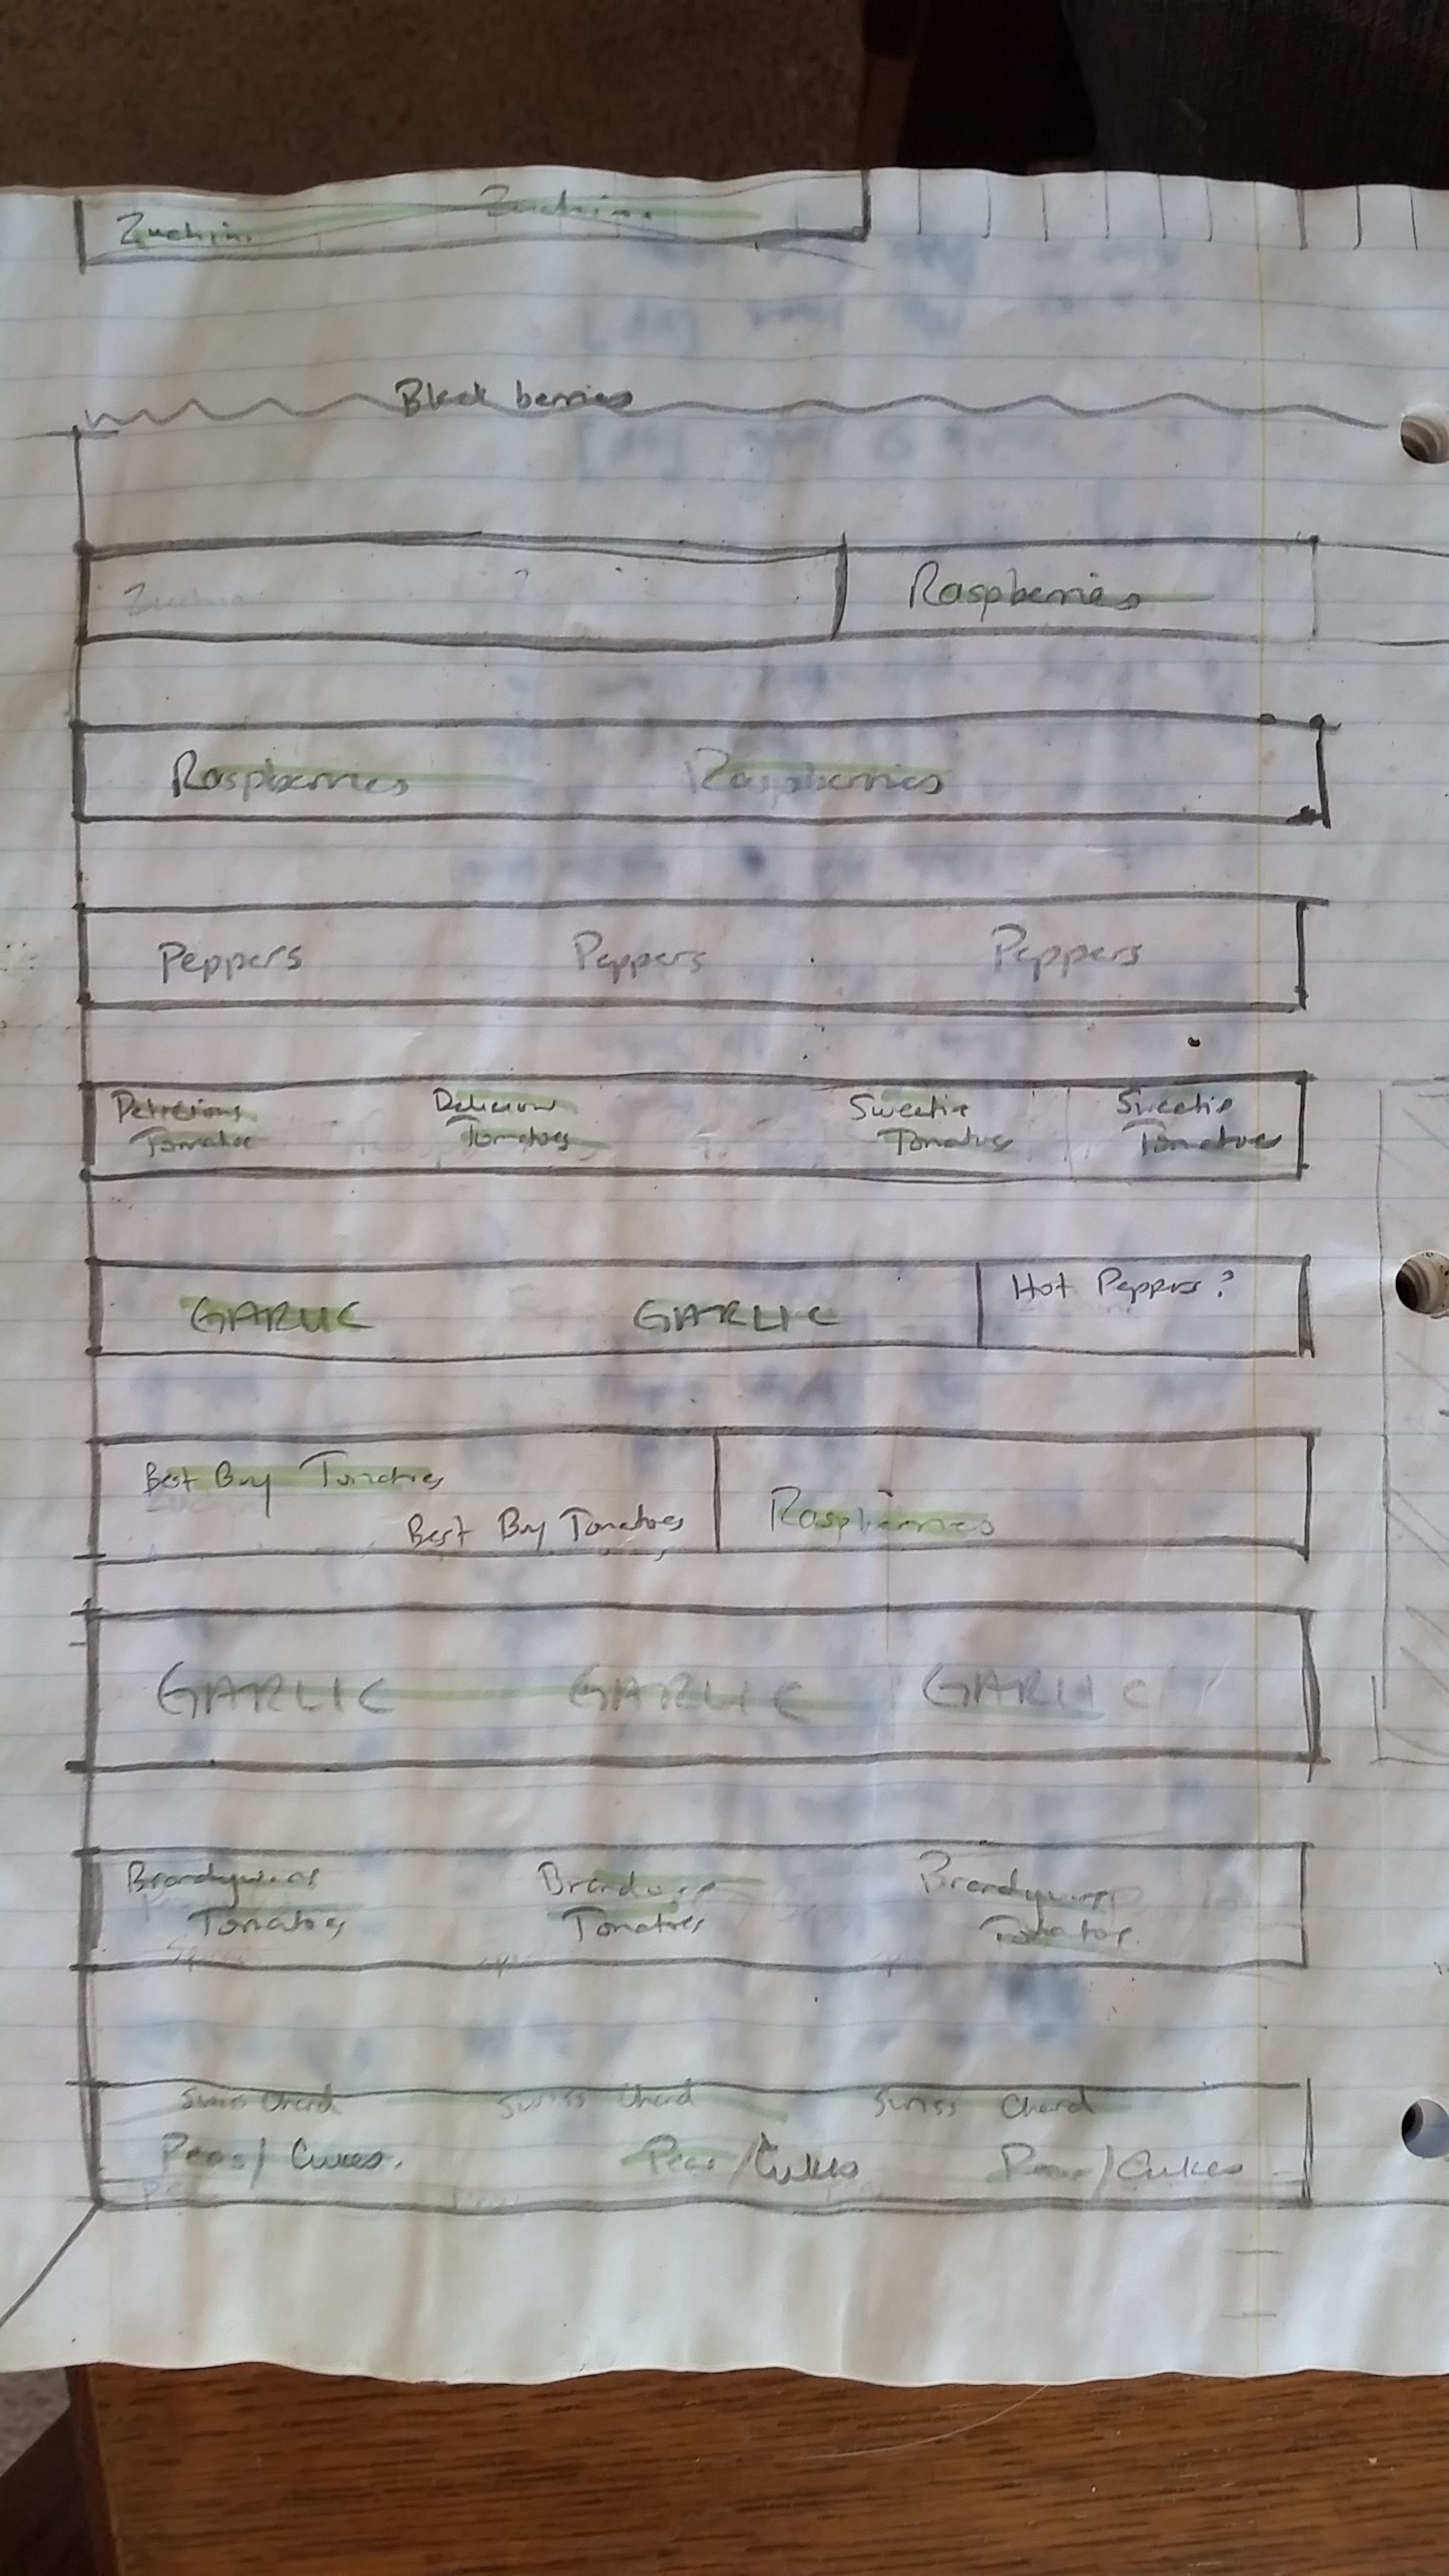 Zuchini Zuchini
Black berries
Raspberries
Raspberries Raspberries
Peppers Peppers Peppers
Delicious Delicious Sweetie Sweetie
Tomatoes Tomatoes Tomatoes Tomatoes
GARLIC GARLIC Hot Peppers?
Best Buy Tomatoes
Best Buy Tomatoes Raspberries
GARLIC GARLIC GARLIC
Brandywine Brandywine Brandywine
Tomatoes Tomatoes Tomatoes
Swiss Chard Swiss Chard Swiss Chard
Peas/Cukes. Peas/Cukes Peas/Cukes